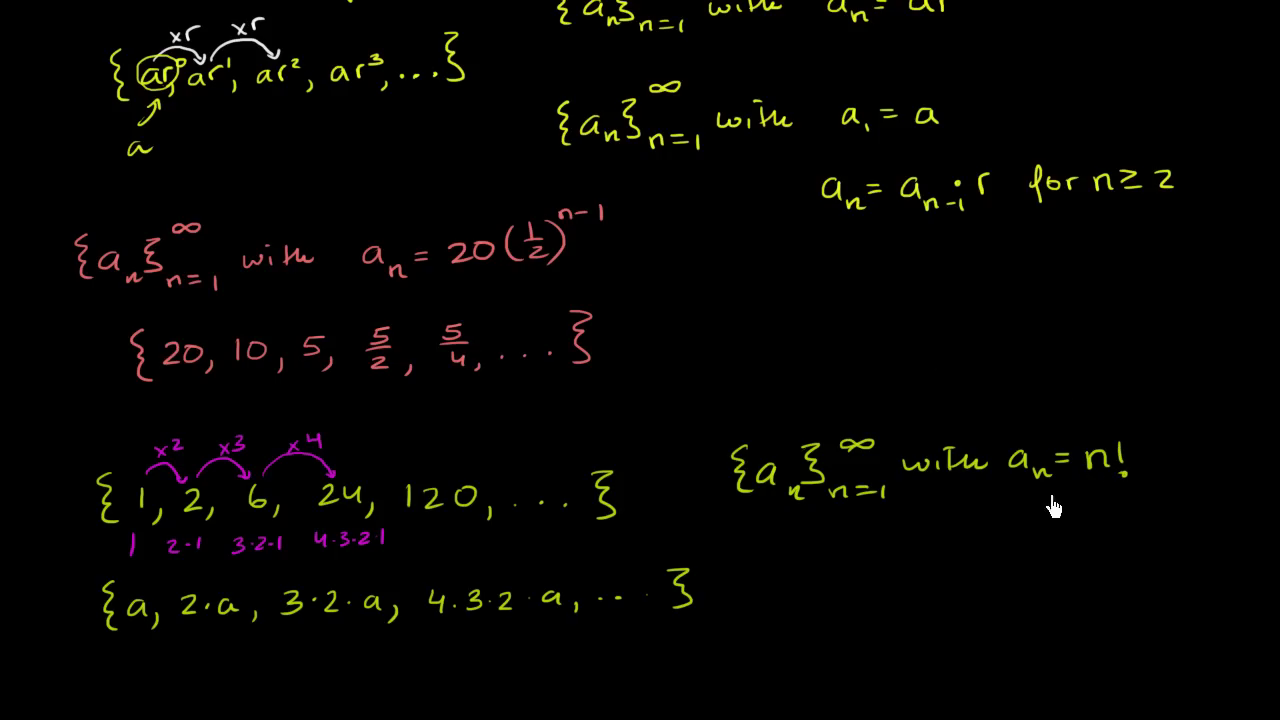 {aₙ}ₙ₌₁ with aₙ = ar
×r ×r
{ar⁰, ar¹, ar², ar³, ...}
a
{aₙ}^∞ₙ₌₁ with a₁ = a
aₙ = aₙ₋₁ · r for n ≥ 2
{aₙ}^∞ₙ₌₁ with aₙ = 20(1/2)ⁿ⁻¹
{20, 10, 5, 5/2, 5/4, ...}
×2 ×3 ×4
{1, 2, 6, 24, 120, ...}
1 2·1 3·2·1 4·3·2·1
{aₙ}^∞ₙ₌₁ with aₙ = n!
{a, 2·a, 3·2·a, 4·3·2·a, ...}